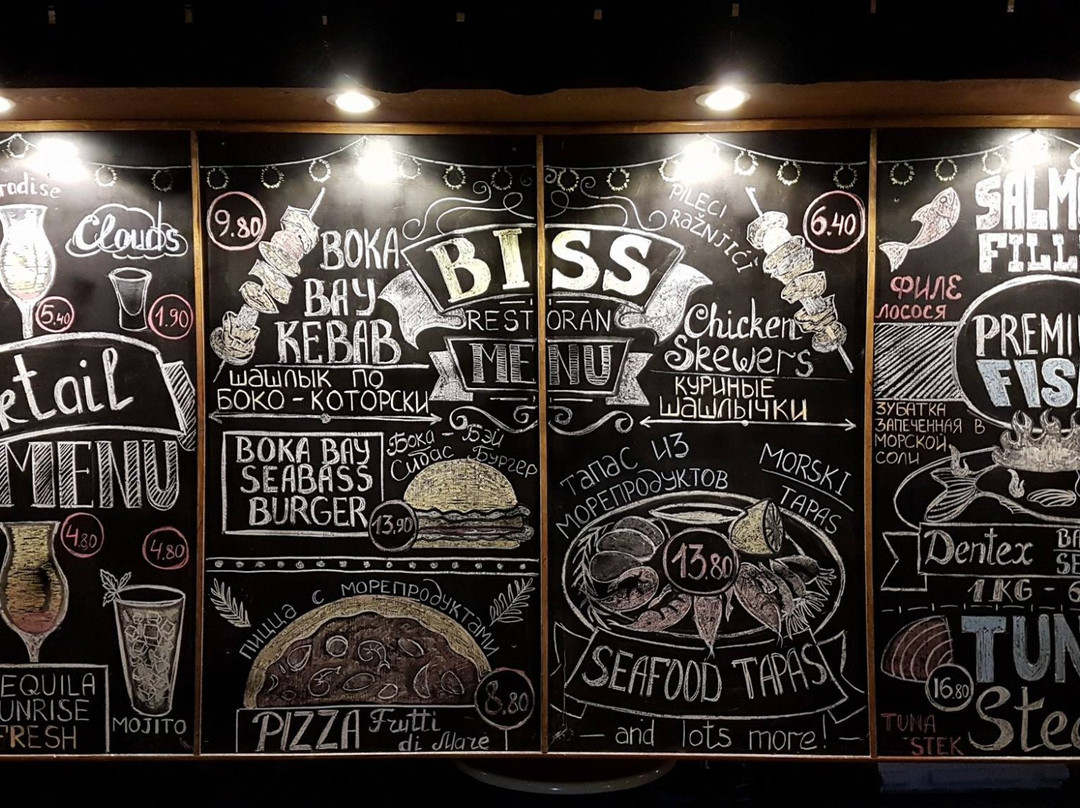 Clouds
5.40
1.90
MENU
4.80
4.80
TEQUILA
SUNRISE
FRESH
MOJITO
9.80
BOKA
BAY
KEBAB
ШАШЛЫК ПО
БОКО-КОТОРСКИ
BISS
RESTORAN
MENU
PILEĆI
RAŽNJIĆI
6.40
Chicken
Skewers
КУРИНЫЕ
ШАШЛЫЧКИ
BOKA BAY
SEABASS
BURGER
13,90
Бока-Бэй
Сибас Бургер
ПИЦЦА С МОРЕПРОДУКТАМИ
8,80
PIZZA Frutti
di Mare
ТАПАС ИЗ
МОРЕПРОДУКТОВ
MORSKI
TAPAS
13.80
SEAFOOD TAPAS
— and lots more! —
ФИЛЕ
ЛОСОСЯ
ЗУБАТКА
ЗАПЕЧЕННАЯ В
МОРСКОЙ
СОЛИ
Dentex
1KG - 6
16.80
TUNA
STEK